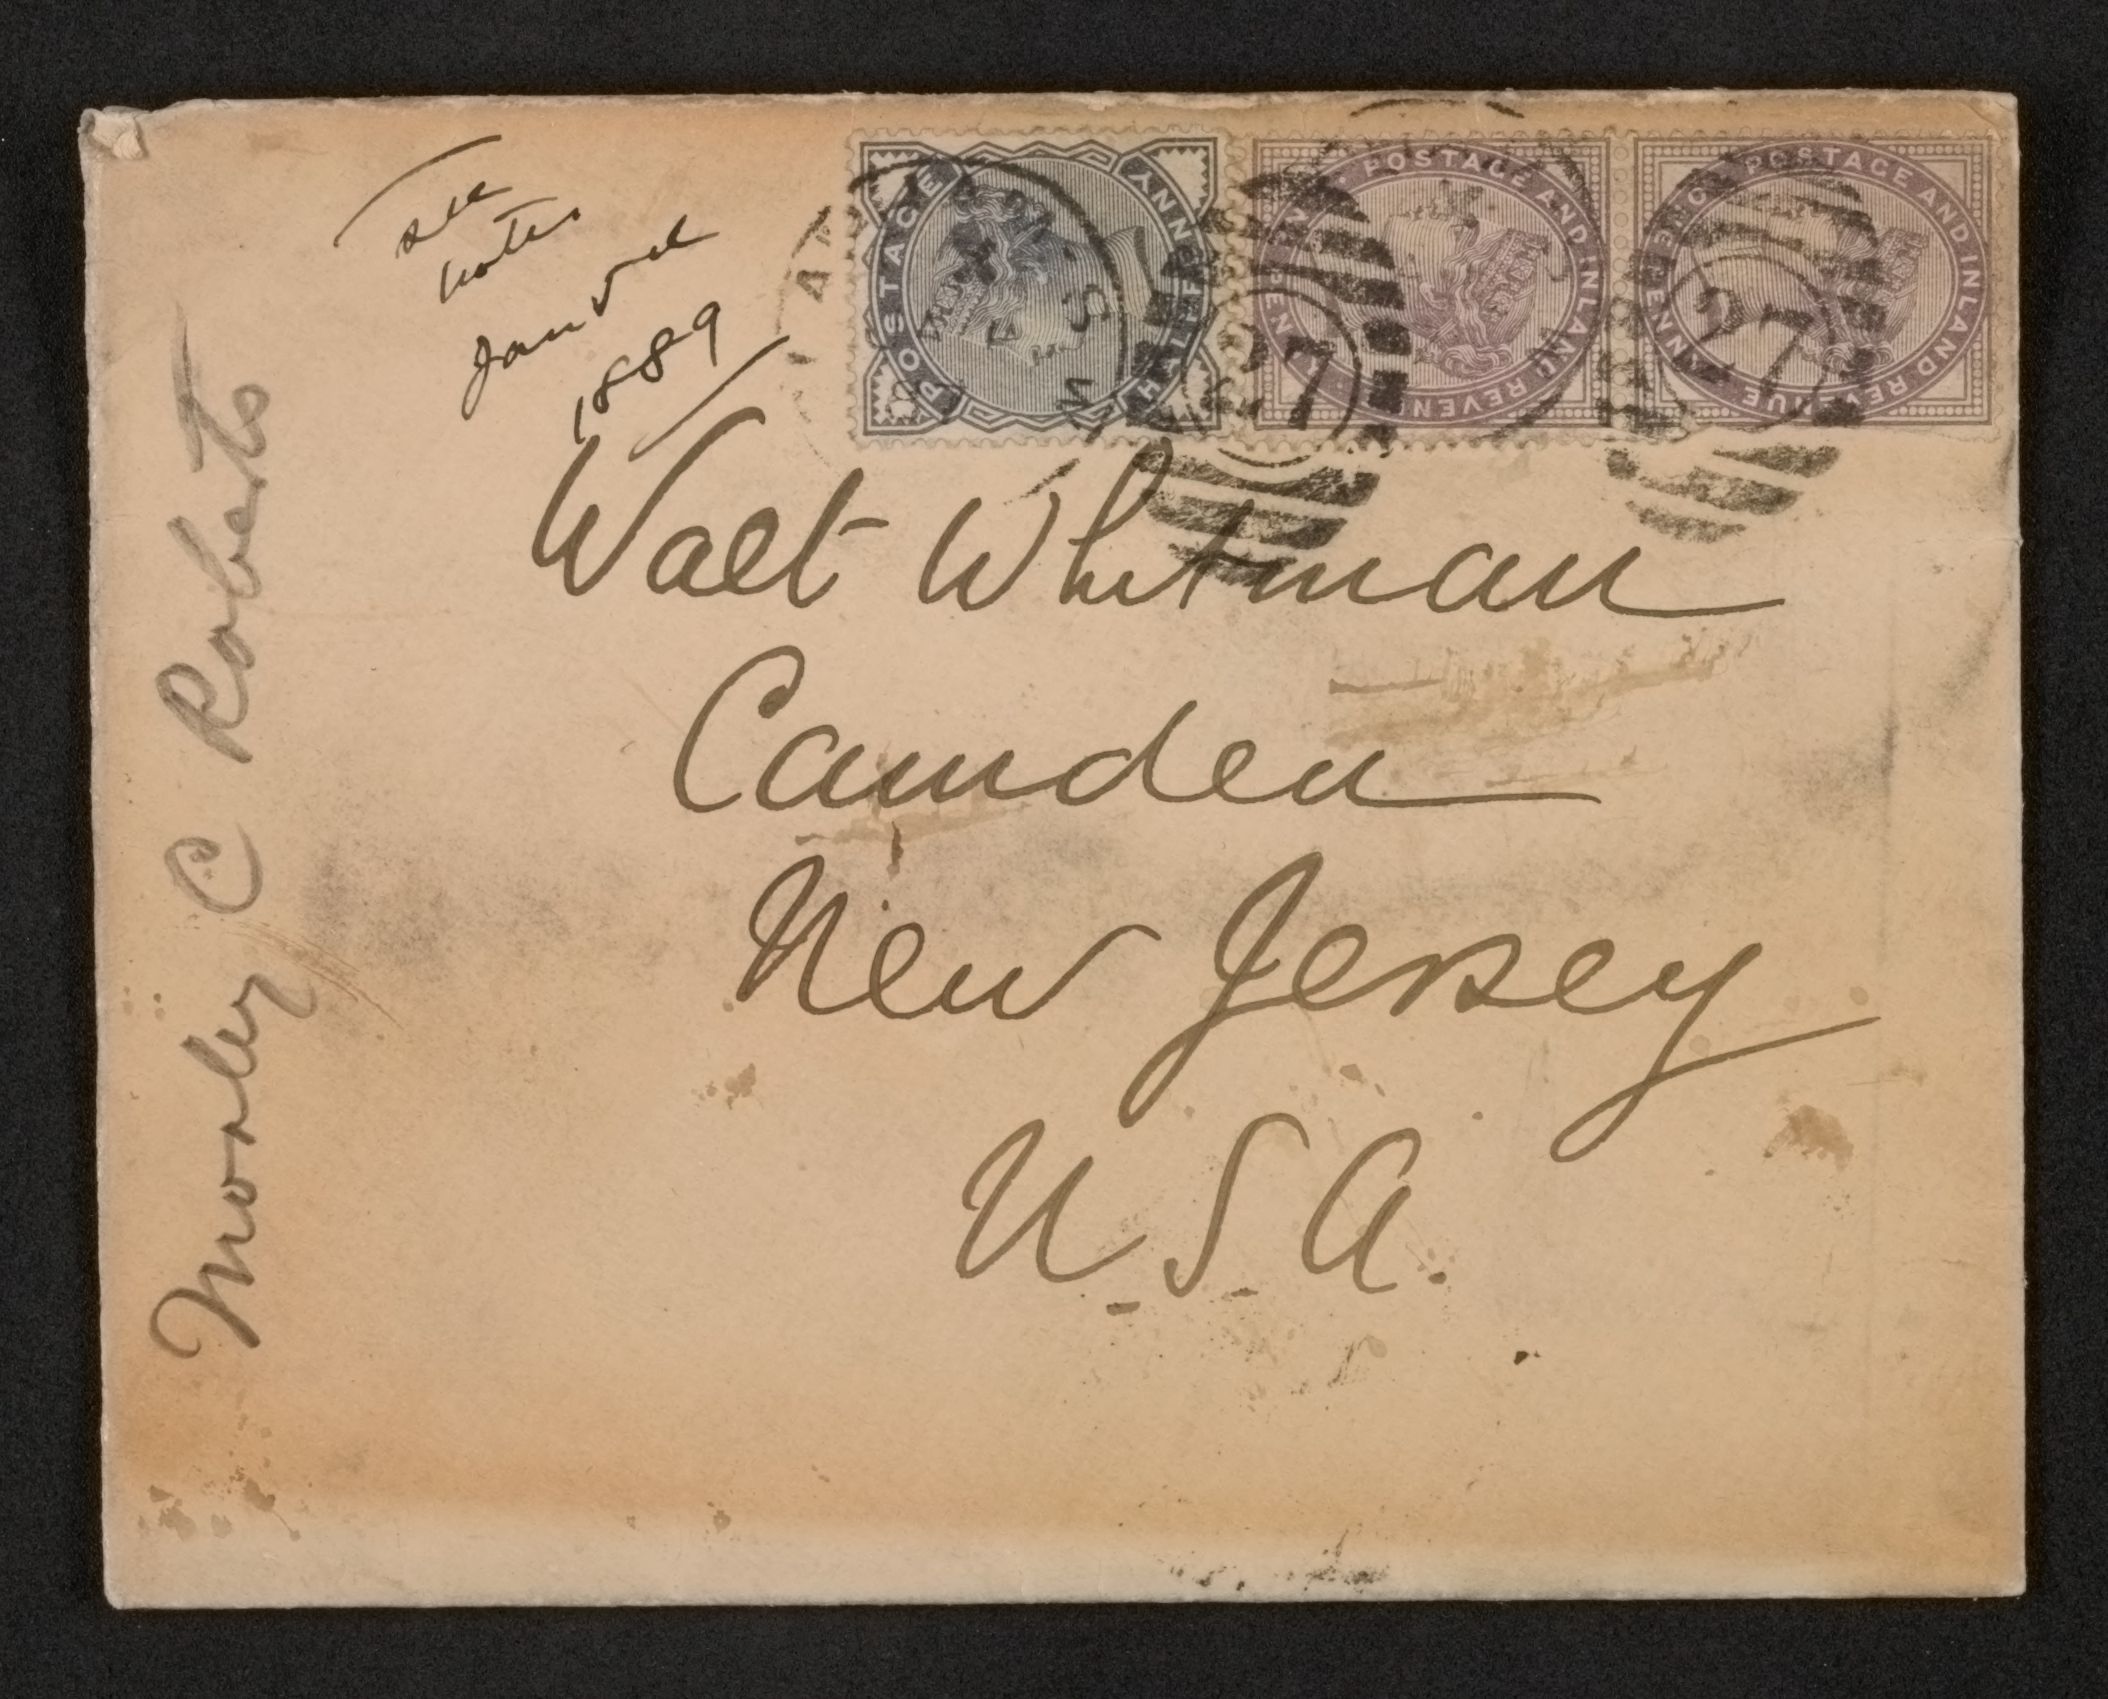 see
notes
Jan 5th
1889
POSTAGE
HALF PENNY
POSTAGE AND INLAND REVENUE
ONE PENNY
POSTAGE AND INLAND REVENUE
27
27
Walt Whitman
Camden
New Jersey
U.S.A.
Morley C Roberts